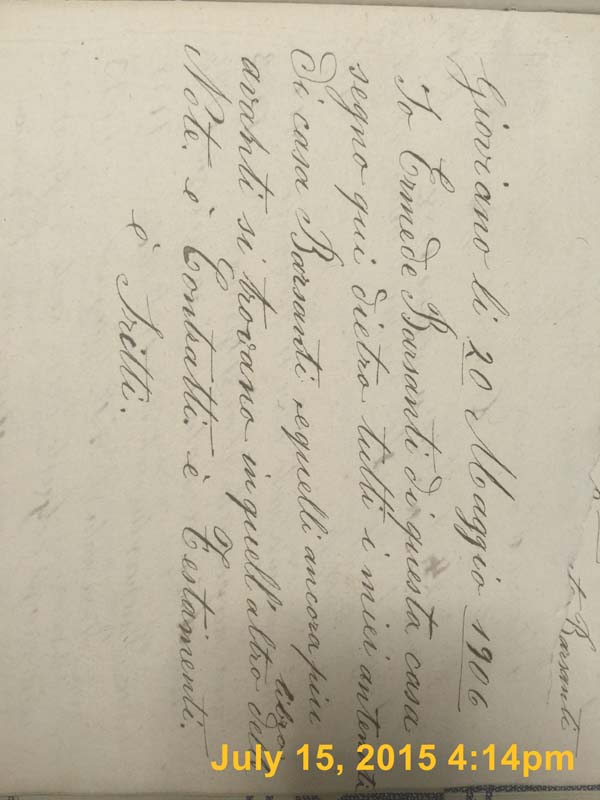 to Barsanti
Gioviano li 20 Maggio 1906
Io Ermede Barsanti di questa casa
segno qui dietro tutti i miei antenati
di casa Barsanti, equelli ancora piu
avanti si trovano in quell'altro libro delle
Note. è Contratti. è Testamenti.
è Scritti.
July 15, 2015 4:14pm